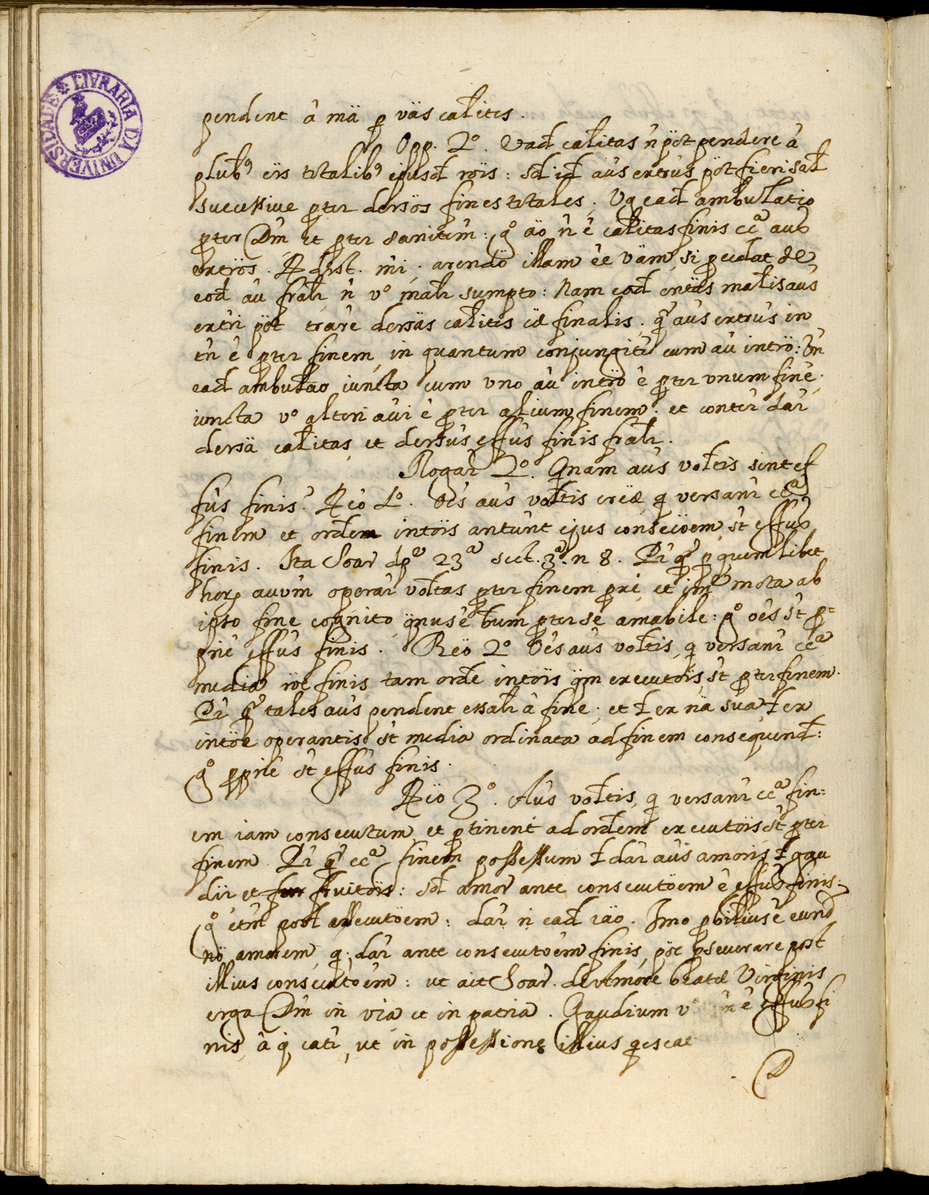 LIVRARIA DA UNIVERSIDADE
pendent â mä p väs calitis.
Opp. 2º. Ead calitas ñ pöt pendere â
plubꝰ eïs totalibꝰ ejusd röis : sd id aûs extrûs pöt fieri sal
successive pter dersös fines totales. Vg ead ambulatio
pter Dm̃ et pter sanitem : gº äo ñ ê calitas finis ccª aus
extrös. R dist. mï. arendö illam êe väm, si pcedat de
eod âu frãli ñ vº mali sumpto : Nam ead entäs malis aûs
extri pöt trare dersäs calitis cæ finalis, q̃ aûs extrûs in
tñ ê pter finem, in quantum conjungitr cum aû intrö : Vñ
ead ambulão iuncta cum uno âu intrö ê pter unum finê,
iuncta vº alteri aûi ê pter alium finem. et contir dãr
dersä calitas, et dersûs effûs finis frãli.
Rogar 2º. Qnam aûs voltis sint ef
fûs finis? Reö 1º. Oês aûs voltis creæ q versanr ccª
finem et ordem intöis antûnt ejus consecöem st effûs
finis. Ita Soar dpª 23ª sect. 3ª n 8. Pr q̃ p quemlibet
horꝝ auum operar voltas pter finem pri, et imê mota ab
ipso fine cognito qnus ê bum pter se amabile : gº oês st p=
priê effûs finis. Reö 2º Oês aûs voltis, q versanr ccª
media ... finis tam ordê intöis qm executöis, st pter finem.
Pr q̃ tales aûs pendent essali â fine, et ł ex nä suä ł ex
intöe operantis st media ordinata ad finem consequend :
gº pprie st effûs finis.
Reö 3º. Aûs voltis, q versanr ccª fin=
em iam consecutum, et ptinent ad ordem executöis st pter
finem. Pr q̃ ccª finem possessum ł dãr aûs amoris, ł gau
dii et fruitöis : sd amor ante consecutöem ê effûs finis :
gº etm post assecutöem : dãr ñ ead räo. Imo pbilius ê eund
nö amorem, q dãr ante consecutoêm finis, pöt pseverare post
illius consecutoêm : ut ait Soar. de amore beatæ Virginis
erga Dm̃ in viâ et in patria. Gaudium vº ñ ê effûs fi
nis, â q catr, ut in possessione illius qescat